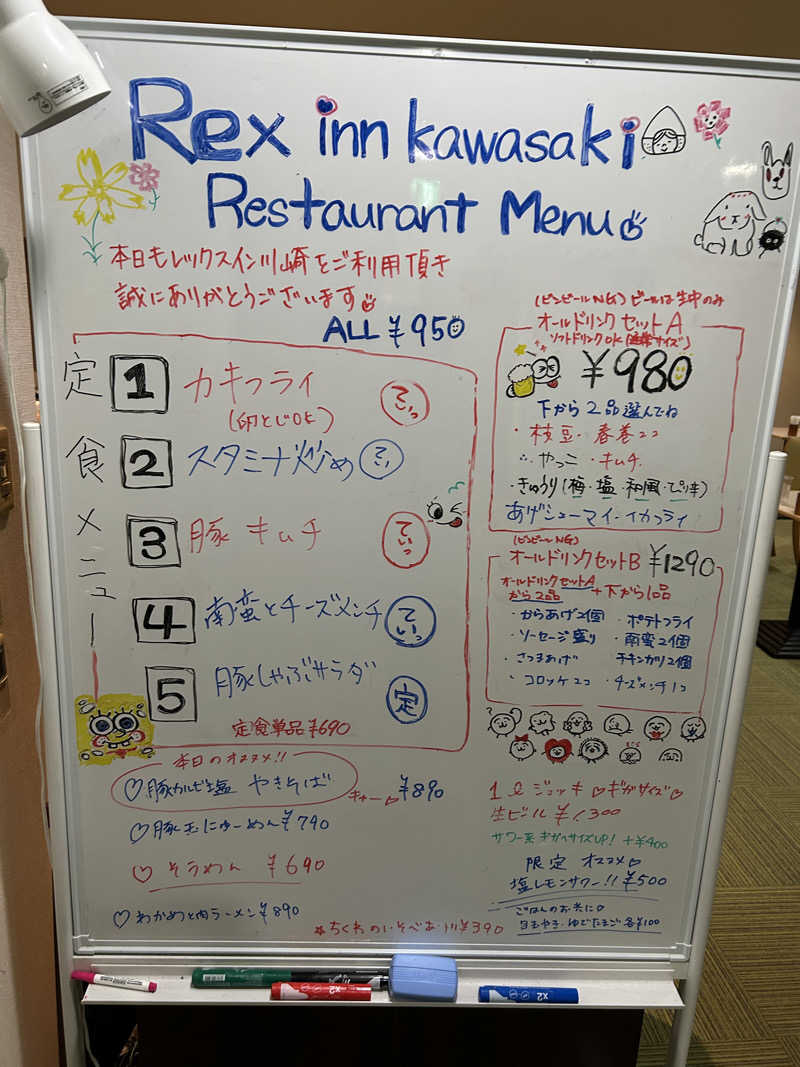 Rex inn kawasaki
Restaurant Menu
本日もレックスイン川崎をご利用頂き
誠にありがとうございます
ALL ¥950
定食メニュー
1 カキフライ
(卵とじOK)
2 スタミナ炒め
3 豚キムチ
4 南蛮とチーズメンチ
5 豚しゃぶサラダ 定
定食単品 ¥690
本日のオススメ!!
♡豚カルビ塩 やきそば
キャー♡ ¥890
♡豚玉にゅーめん ¥790
♡そうめん ¥690
♡わかめと肉ラーメン ¥890
ちくわのいそべあげ ¥390
(ビンビールNG) ビールは生中のみ
オールドリンクセットA
ソフトドリンクOK(通常サイズ)
¥980
下から2品選んでね
・枝豆・春巻2コ
・やっこ・キムチ
・きゅうり(梅・塩・和風・ピリ辛)
あげシューマイ・イカフライ
(ビンビールNG)
オールドリンクセットB ¥1290
オールドリンクセットA
から2品 + 下から1品
・からあげ2個 ・ポテトフライ
・ソーセージ盛り ・南蛮2個
・さつまあげ ・チキンカツ2個
・コロッケ2コ ・チーズメンチ1コ
1ℓジョッキ♡ギガサイズ♡
生ビール ¥1,300
サワー系ギガサイズUP! +¥400
限定 オススメ♡
塩レモンサワー!! ¥500
ごはんのお共に♡
目玉ヤキ・ゆでたまご 各¥100
x2
x2